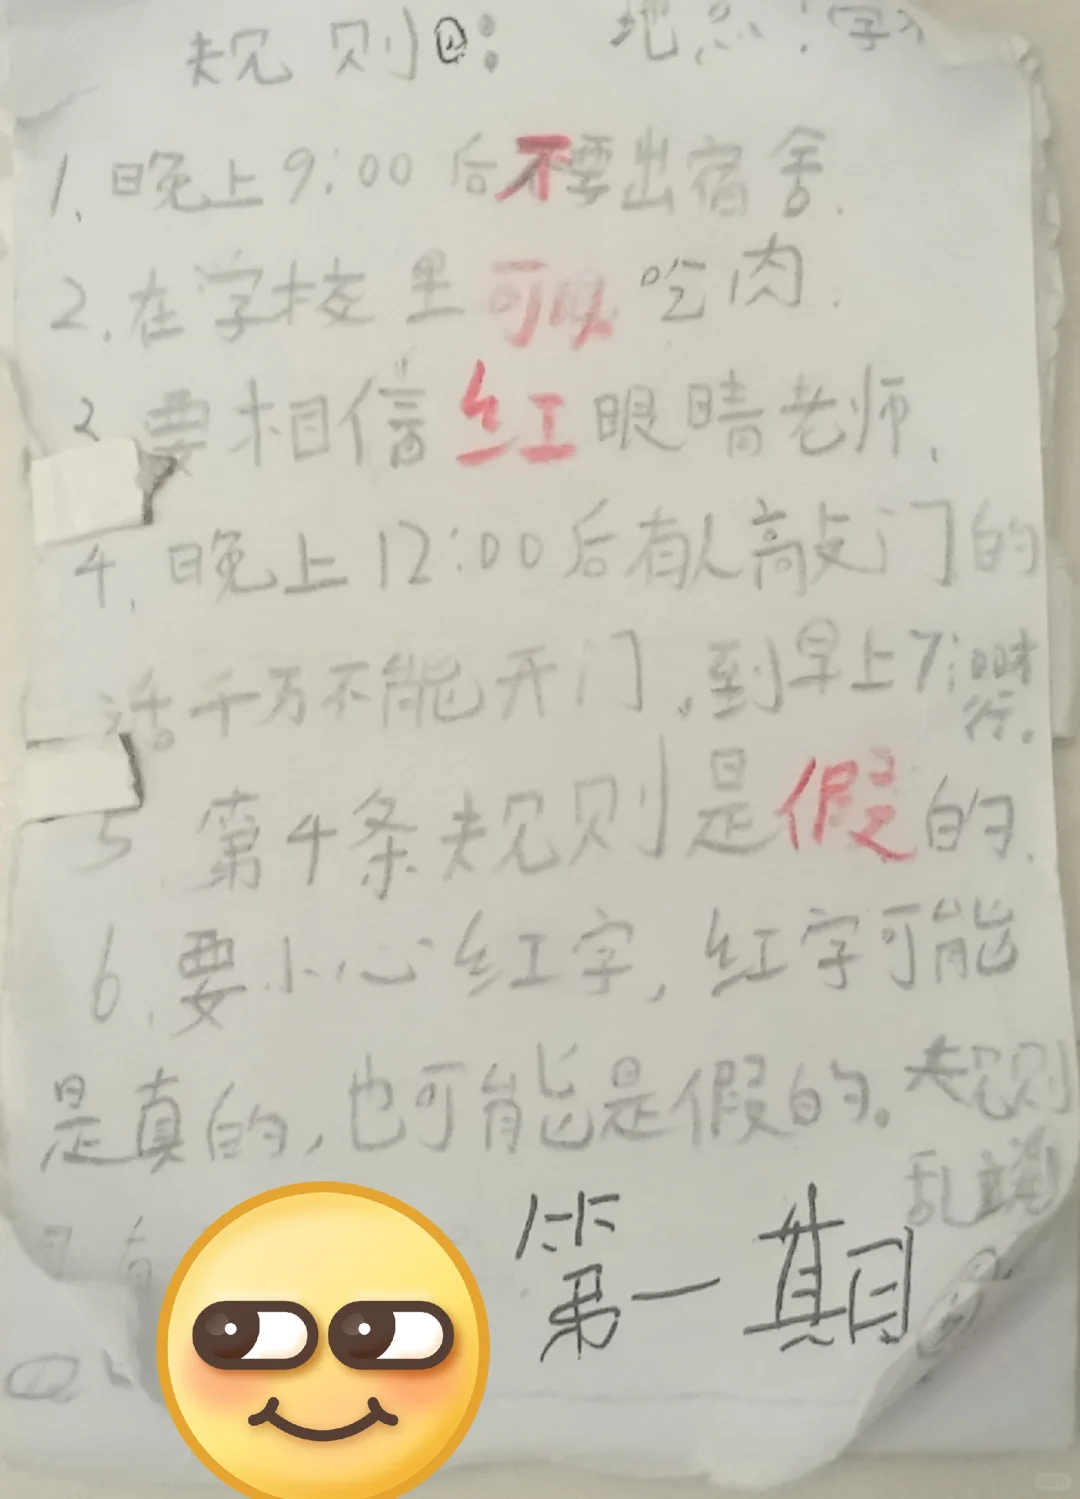 规则②: 地点:学
1.晚上9:00后不要出宿舍.
2.在学校里可以吃肉.
3 要相信红眼睛老师.
4.晚上12:00后有人敲门的
话千万不能开门,到早上7:00才
行。
5 第4条规则是假的.
6.要小心红字,红字可能
是真的,也可能是假的。规则
乱编
第一期